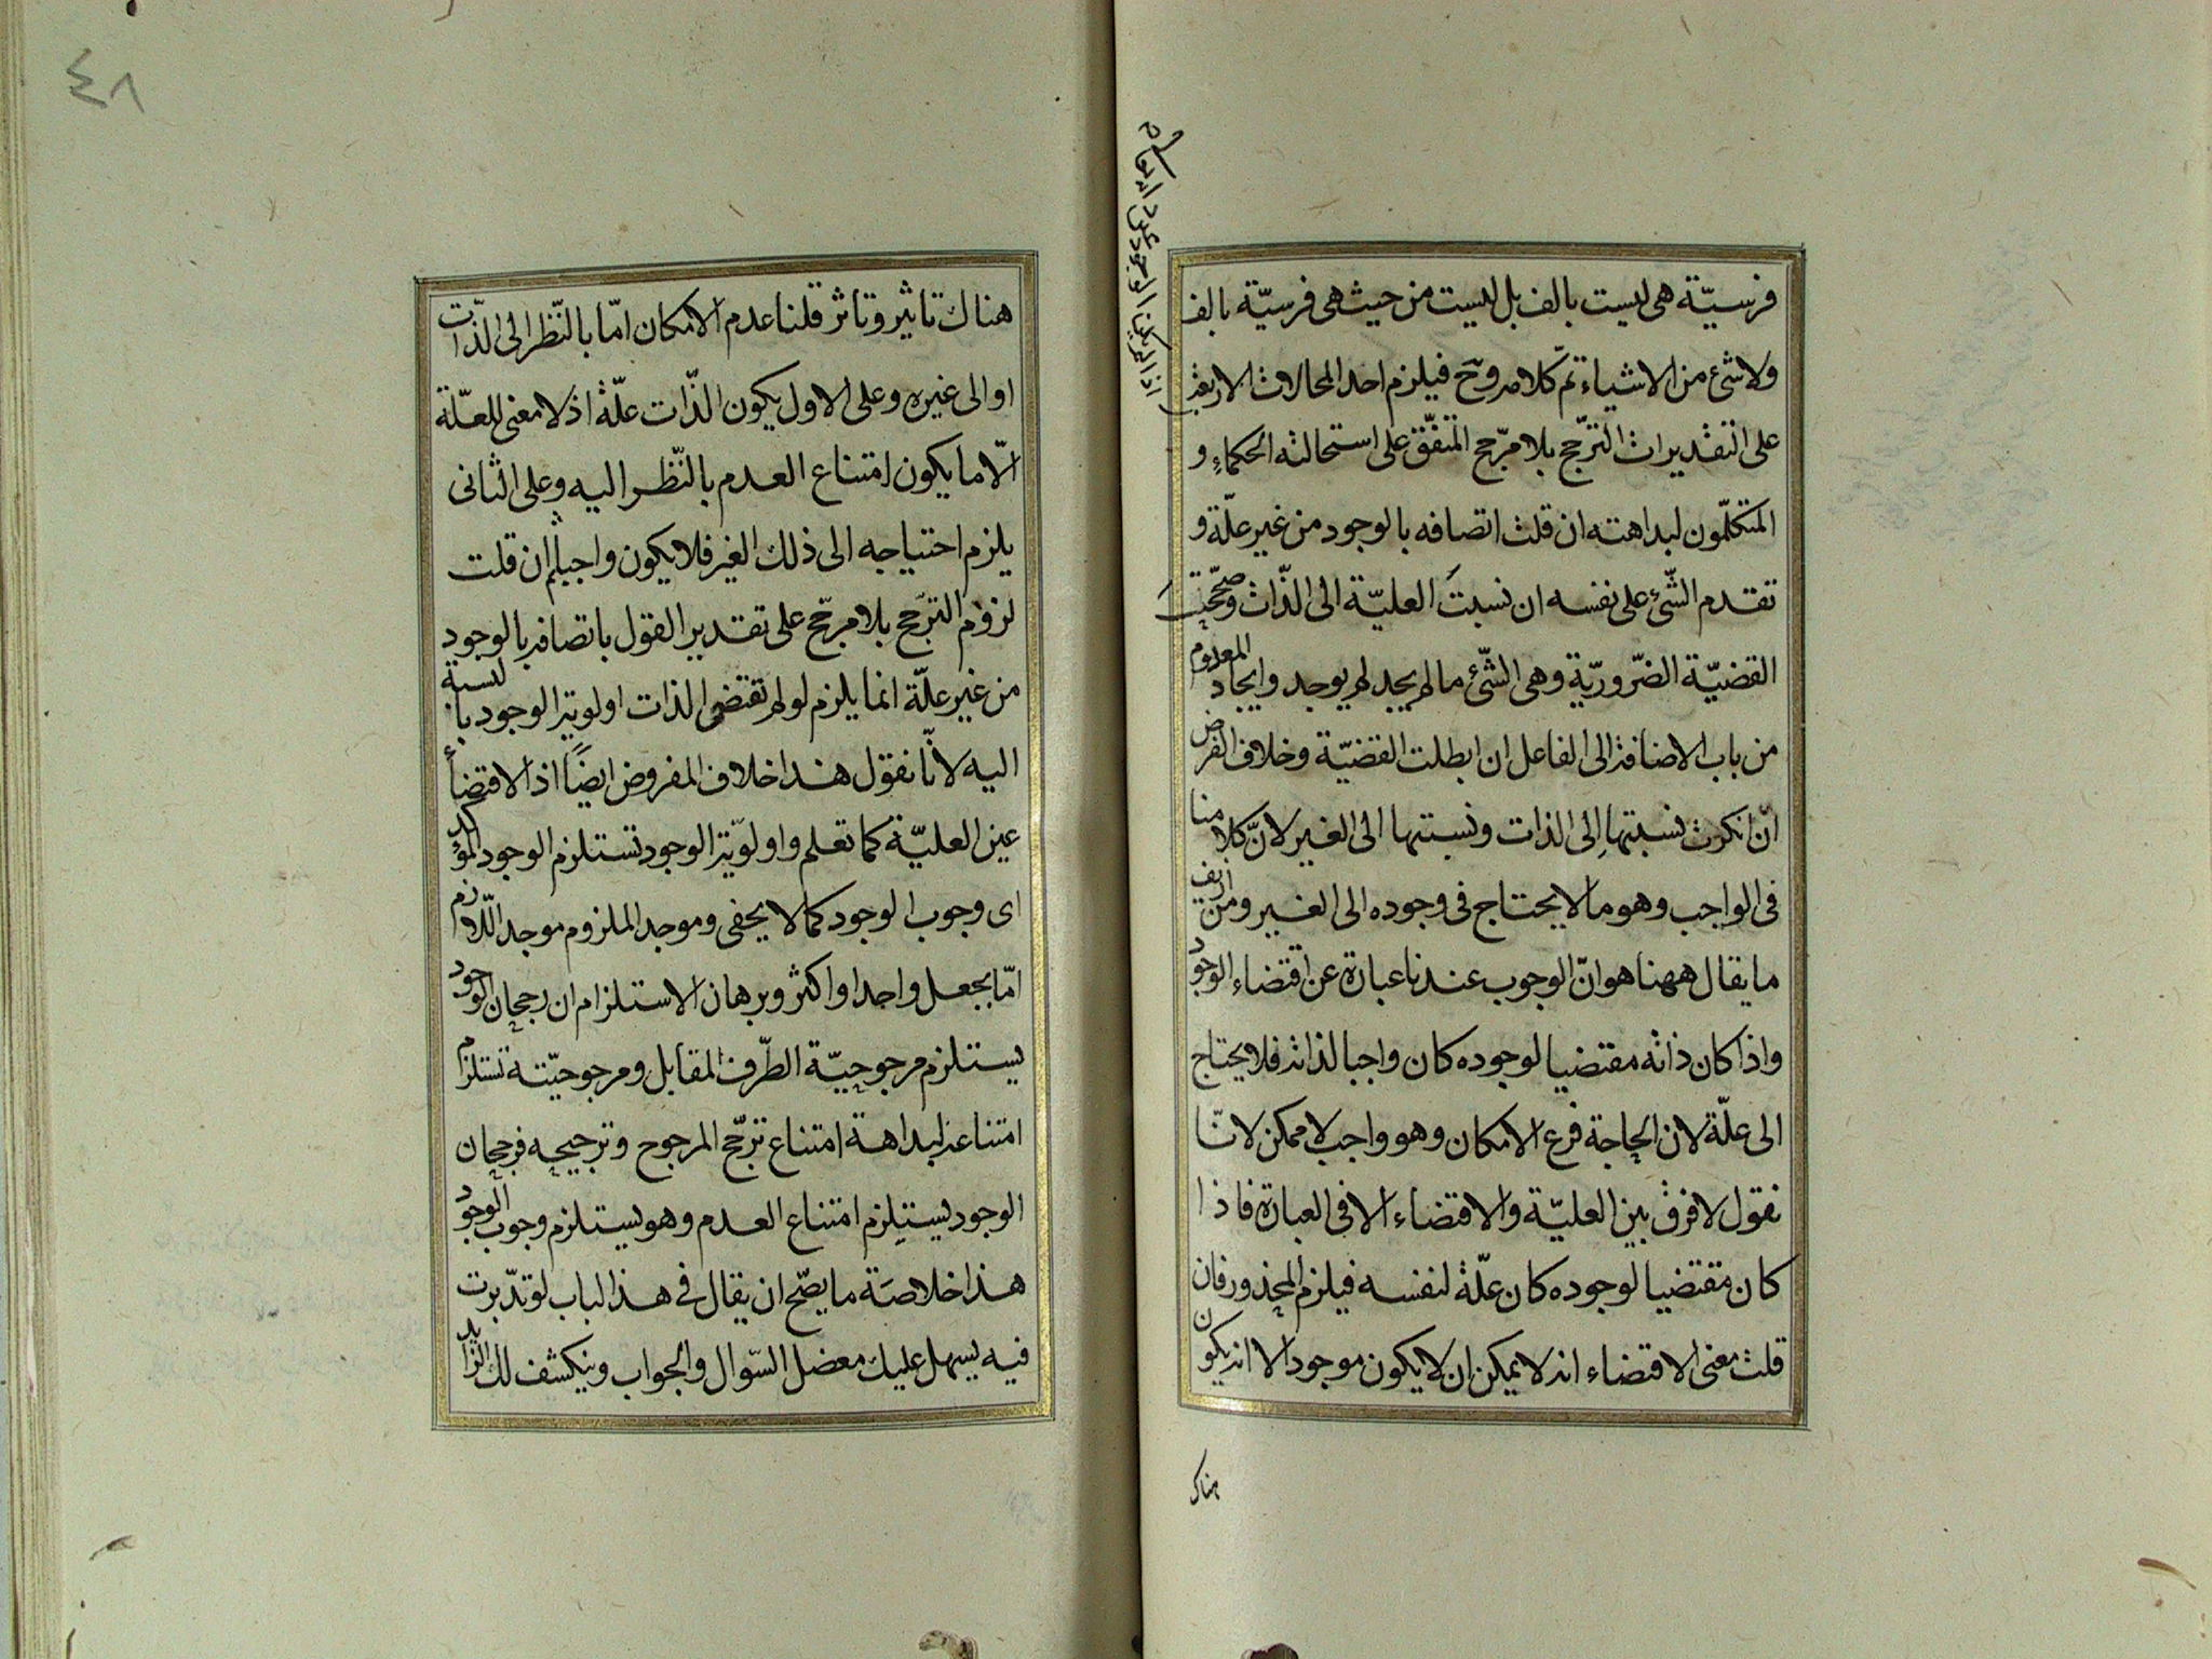 فرسيّة هى ليست بالف بل ليست من حيث هى فرسيّة بالف
ولا شئ من الاشياء تمّ كلامه وح فيلزم احد المحالات الاربعة
على التقديرات الترّجح بلا مرّجح المتفّق على استحالته الحكماء و
المتكلّمون لبداهته ان قلت اتصافه بالوجود من غير علّة و
تقدم الشّئ على نفسه ان نسبتَ العليّة الى الذّات وصحّحت
القضيّة الضّروريّة وهى الشّئ ما لم يجد لم يوجد وايجاد المعدوم
من باب الاضافة الى الفاعل ان ابطلت القضيّة وخلاف الفرض
انّ انكرت نسبتها الى الذات ونسبتها الى الغير لانّ كلامنا
فى الواجب وهو ما لا يحتاج فى وجوده الى الغير ومن ازيف
ما يقال ههنا هو انّ الوجوب عندنا عبارة عن اقتضاء الوجود
واذا كان ذاته مقتضيا لوجوده كان واجبا لذاته فلا يحتاج
الى علّة لان الحاجة فرع الامكان وهو واجب لا ممكن لانّا
نقول لا فرق بين العليّة والاقتضاء الا فى العبارة فاذا
كان مقتضيا لوجوده كان علّة لنفسه فيلزم المحذور فان
قلت معنى الاقتضاء انه لا يمكن ان لا يكون موجودا لا انه يكون
هناك
٤٨
هناك تاثير وتاثر قلنا عدم الامكان امّا بالنّظر الى الذّات
او الى غيره وعلى الاول يكون الذّات علّة اذ لا معنى للعلّة
الّا ما يكون امتناع العدم بالنّظر اليه وعلى الثانى
يلزم احتياجه الى ذلك الغير فلا يكون واجبا ثم ان قلت
لزوم الترّجح بلا مرجّح على تقدير القول باتصافه بالوجود
من غير علّة انما يلزم لو لم تقتضى الذات اولوية الوجود بالنسبة
اليه لانّا نقول هذا خلاف المفروض ايضاً اذ الاقتضاء
عين العليّة كما تعلم واولويّة الوجود تستلزم الوجود المؤكد
اى وجوب الوجود كما لا يخفى وموجد الملزوم موجد اللّازم
امّا بجعل واحد او اكثر وبرهان الاستلزام ان رجحان الوجود
يستلزم مرجوحيّة الطّرف المقابل ومرجوحيّته تستلزم
امتناعه لبداهة امتناع ترجّح المرجوح وترجيحه فرجحان
الوجود يستلزم امتناع العدم وهو يستلزم وجوب الوجود
هذا خلاصَة ما يصّح ان يقال فى هذا الباب لو تدّبرت
فيه يسهل عليك معضل السّوال والجواب وينكشف لك الزايد